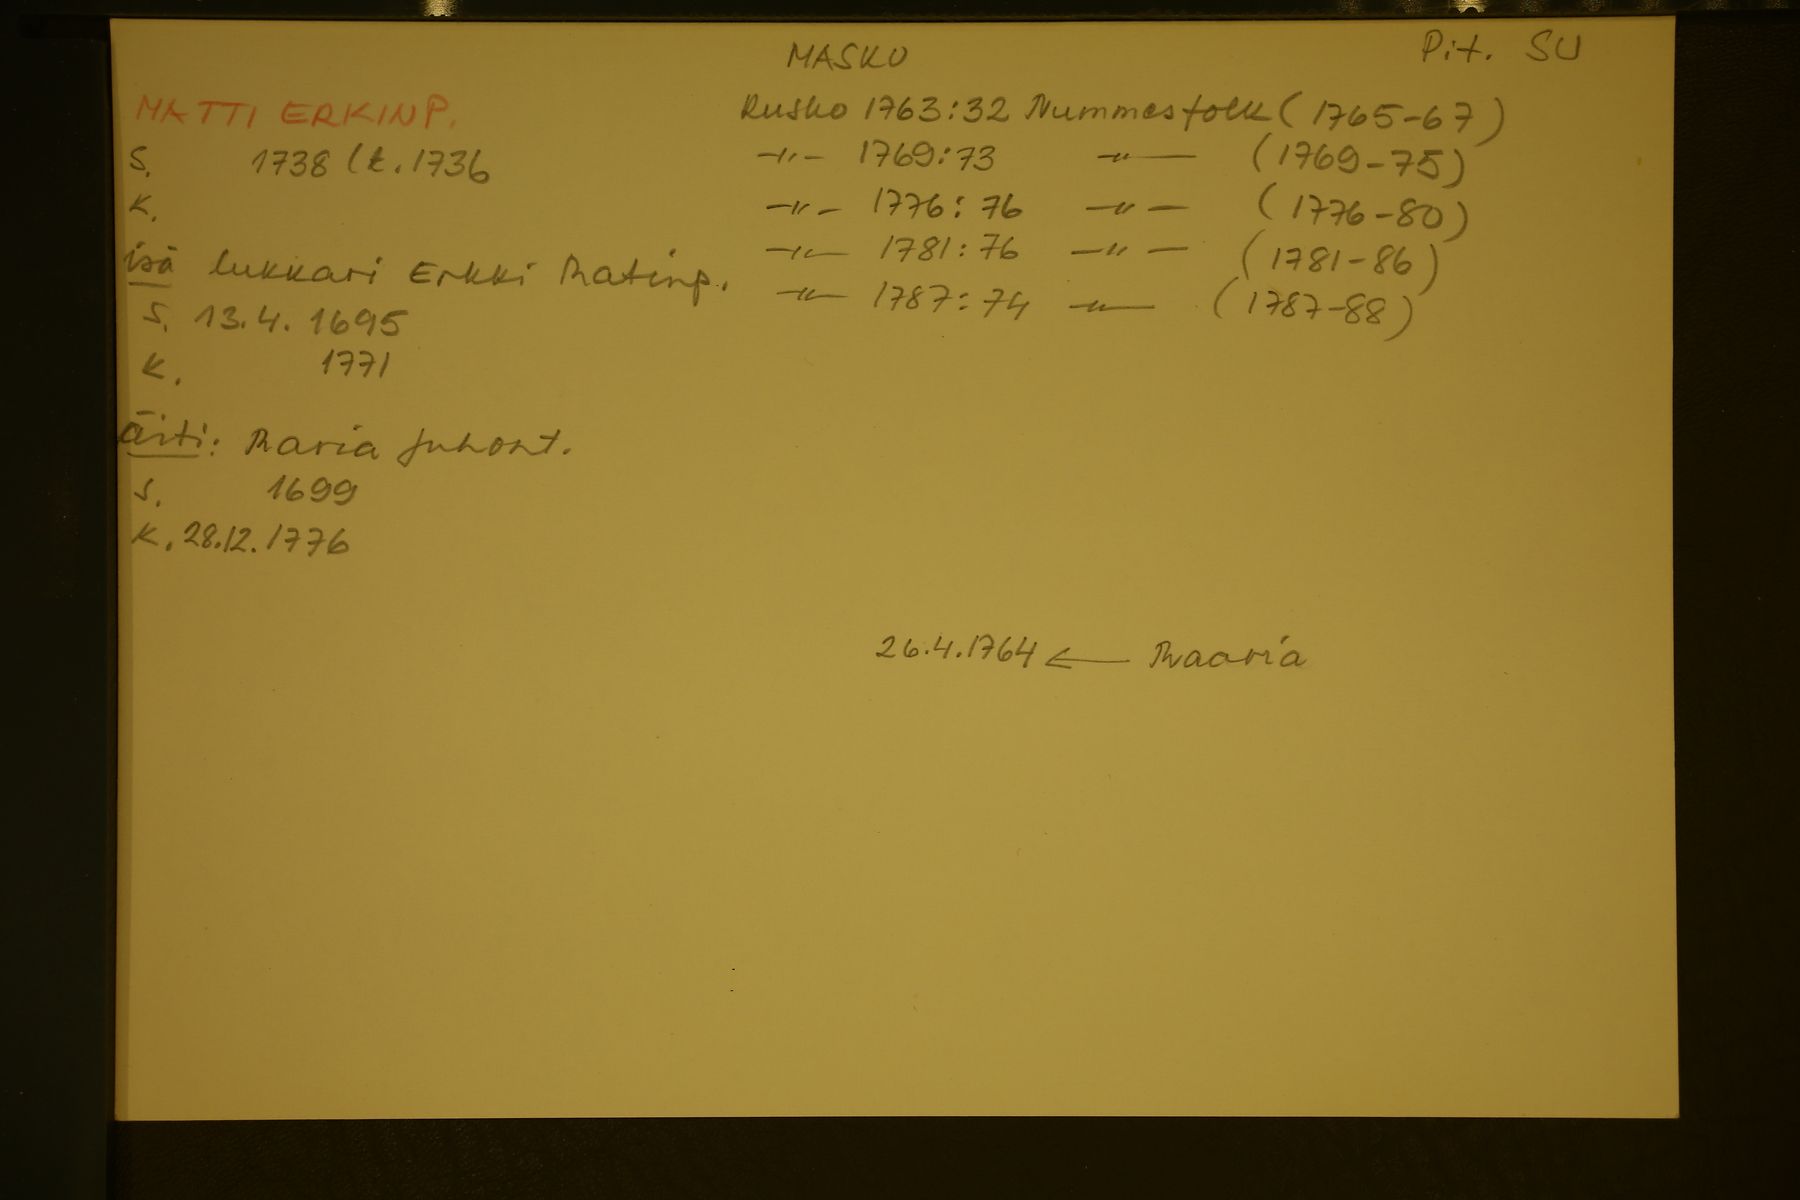 MASKU
Pit. SU
MATTI ERKINP.
S. 1738 (k. 1736
K.
isä lukkari Erkki Matinp.
S. 13.4. 1695
K. 1771
Äiti: Maria Juhont.
S. 1699
K. 28.12.1776
Rusko 1763:32 Nummesfolk (1765-67)
-"- 1769:73 -"- (1769-75)
-"- 1776:76 -"- (1776-80)
-"- 1781:76 -"- (1781-86)
-"- 1787:74 -"- (1787-88)
26.4.1764 ← Maaria